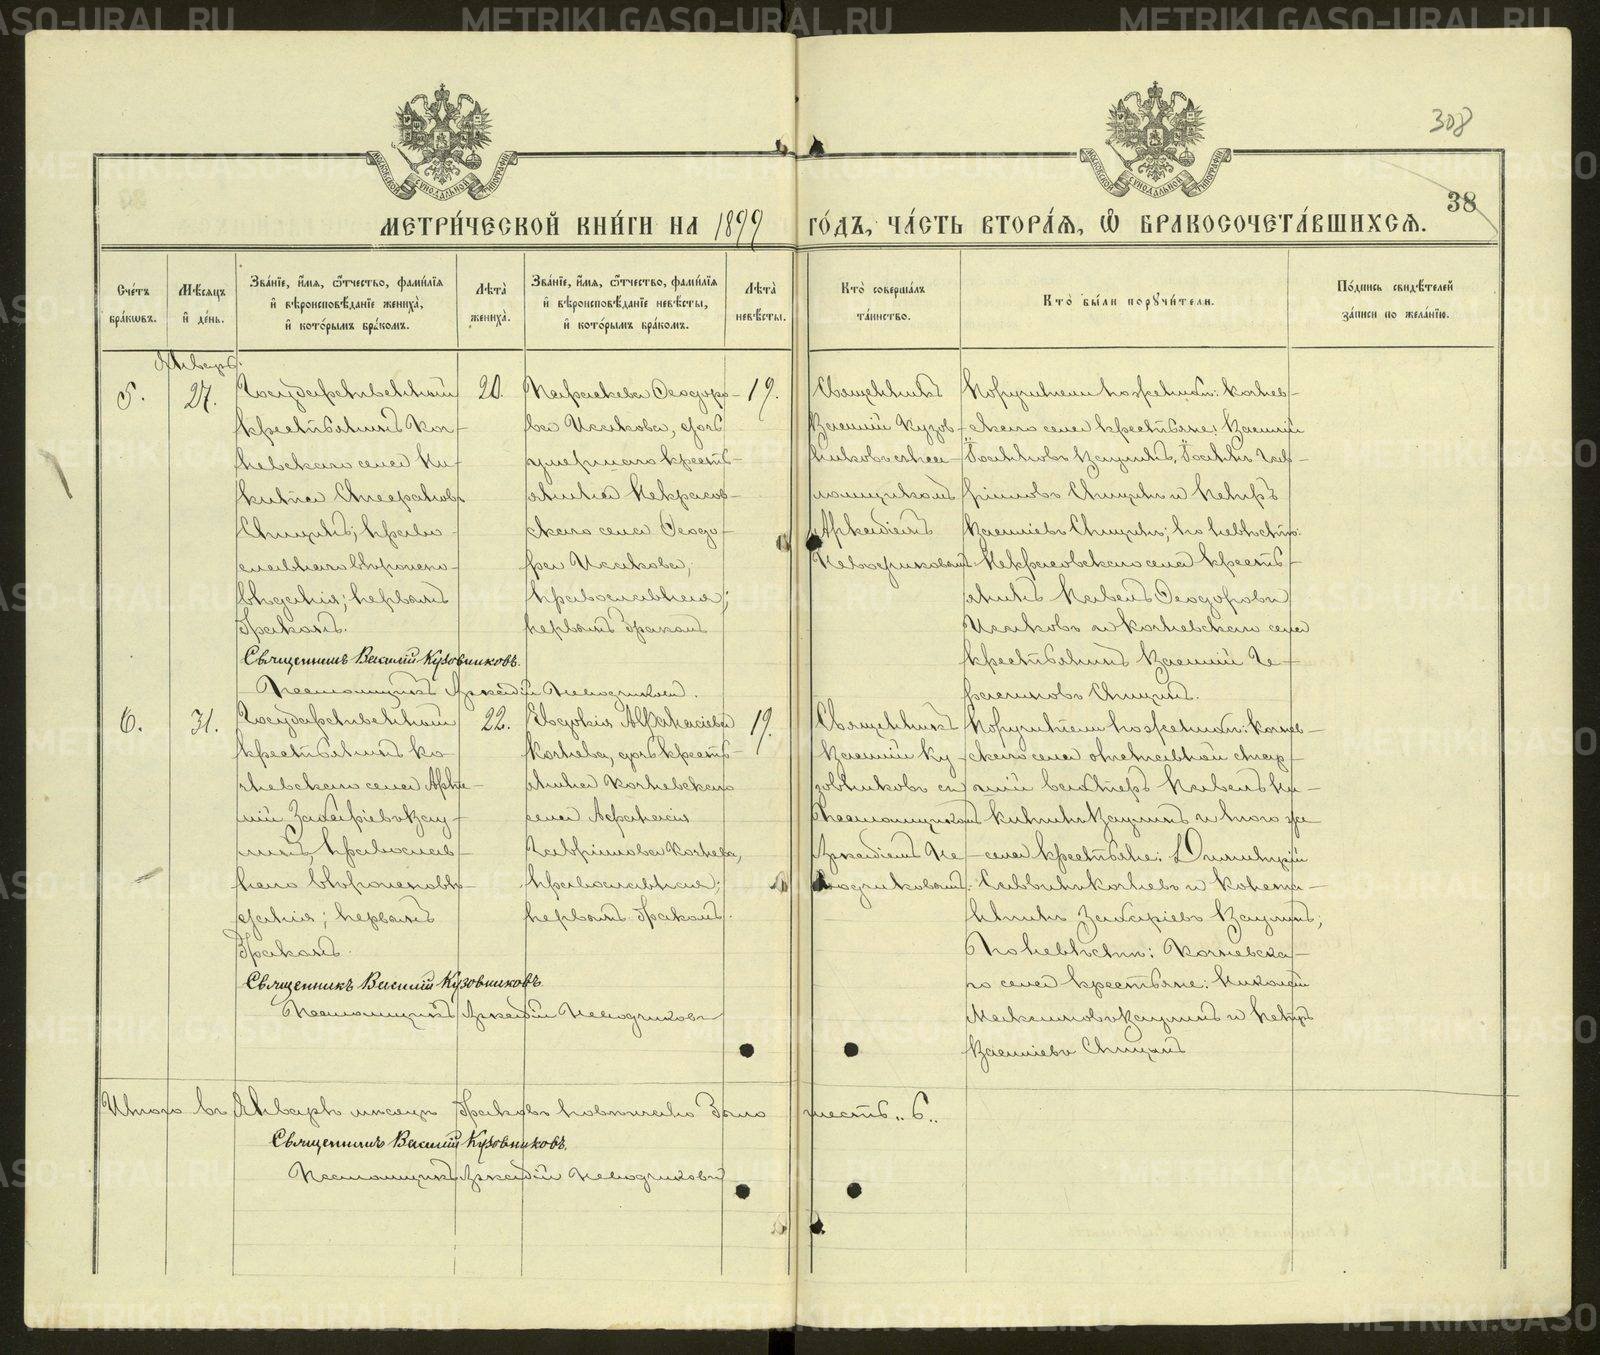 308
38
МЕТРИ́ЧЕСКОЙ КНИ́ГИ НА 1899 ГО́ДЪ, ЧА́СТЬ ВТОРА́Я, Ѽ БРАКОСОЧЕТА́ВШИХСЯ.
Сче́тъ бра́кѡвъ.
Мѣ́сяцъ и҆ де́нь.
Зва́нїе, и҆́мя, ѿтчество, фами́лїя и҆ вѣроисповѣ́данїе жениха̀, и҆ кото́рымъ бра́комъ.
Лѣта̀ жениха̀.
Зва́нїе, и҆́мя, ѿтчество, фами́лїя и҆ вѣроисповѣ́данїе невѣ́сты, и҆ кото́рымъ бра́комъ.
Лѣта̀ невѣ́сты.
Кто̀ соверша́лъ та́инство.
Кто̀ бы́ли порꙋчи́тели.
По́дпись свидѣ́телей за́писи по жела́нїю.
Январь.
5.
27.
Государственный
крестьянинъ Коч-
невскаго села Ни-
кита
Спицинъ; право-
славнаго вѣроиспо-
вѣданія; первымъ
бракомъ.
20.
Параскева Ѳеодоро-
ва Исакова, дочь
умершаго кресть-
янина Некрасов-
скаго села Ѳеодо-
ра Исакова,
православная;
первымъ бракомъ
19.
Священникъ
Василій Кузов-
никовъ съ пса-
ломщикомъ
Аркадіемъ
Неводчиковымъ
Поручители по женихѣ: Кочнев-
скаго села крестьяне: Василій
Іоанновъ Ваулинъ, Іоаннъ Гав-
ріиловъ Спицинъ и Петръ
Василіевъ Спицинъ; по невѣстѣ:
Некрасовскаго села кресть-
янинъ Павелъ Ѳеодоровъ
Исаковъ и Кочневскаго села
крестьянинъ Василій Ге-
расимовъ Спицинъ.
Священникъ Василій Кузовниковъ.
Псаломщикъ Аркадій Неводчиковъ.
6.
31.
Государственный
крестьянинъ Ко-
чневскаго села Арте-
мій Захаріевъ Вау-
линъ, православ-
наго вѣроисповѣ-
данія; первымъ
бракомъ.
22.
Евдокія Аѳанасіева
Кочнева, дочь кресть-
янина Кочневскаго
села Аѳанасія
Гавріилова Кочнева,
православная;
первымъ бракомъ.
19.
Священникъ
Василій Ку-
зовниковъ съ
Псаломщикомъ
Аркадіемъ Не-
водчиковымъ.
Поручители по женихѣ: Кочнев-
скаго села отставной стар-
шій вахтеръ Павелъ Ни-
китинъ Ваулинъ и того же
села крестьяне: Димитрій
Саввинъ Кочневъ и Конста-
нтинъ Захаріевъ Ваулинъ;
По невѣстѣ: Кочневска-
го села крестьяне: Николай
Максимовъ Ваулинъ и Петръ
Василіевъ Спицинъ
Священникъ Василій Кузовниковъ.
Псаломщикъ Аркадій Неводчиковъ
Итого въ Январѣ мѣсяцѣ браковъ повѣнчано было шесть „6„.
Священникъ Василій Кузовниковъ.
Псаломщикъ Аркадій Неводчиковъ
METRIKI.GASO-URAL.RU